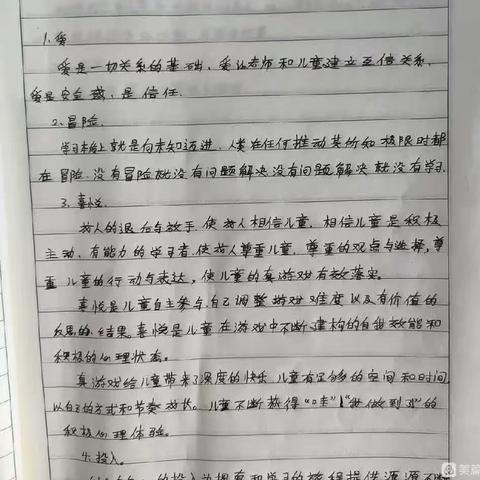 1.爱
爱是一切关系的基础、爱让老师和儿童建立互信关系,
爱是安全感、是信任.
2.冒险.
学习本质上就是向未知迈进,人类在任何推动其所知极限时都
在冒险.没有冒险就没有问题解决没有问题解决就没有学习.
3.喜悦.
成人的退后与放手.使成人相信儿童.相信儿童是积极
主动、有能力的学习者.使成人尊重儿童.尊重的观点与选择,尊
重儿童的行动与表达,使儿童的真游戏有效落实。
喜悦是儿童自主参与.自己调整游戏难度以及有价值的
反思的结果.喜悦是儿童在游戏中不断建构的自我效能和
积极的心理状态。
真游戏给儿童带来了深度的快乐儿童有足够的空间和时间
以自己的方式和节奏成长。儿童不断获得“哇”“我做到了”的
积极心理体验。
4.投入。
的投入为探索和学习的旅程提供源源不
美篇